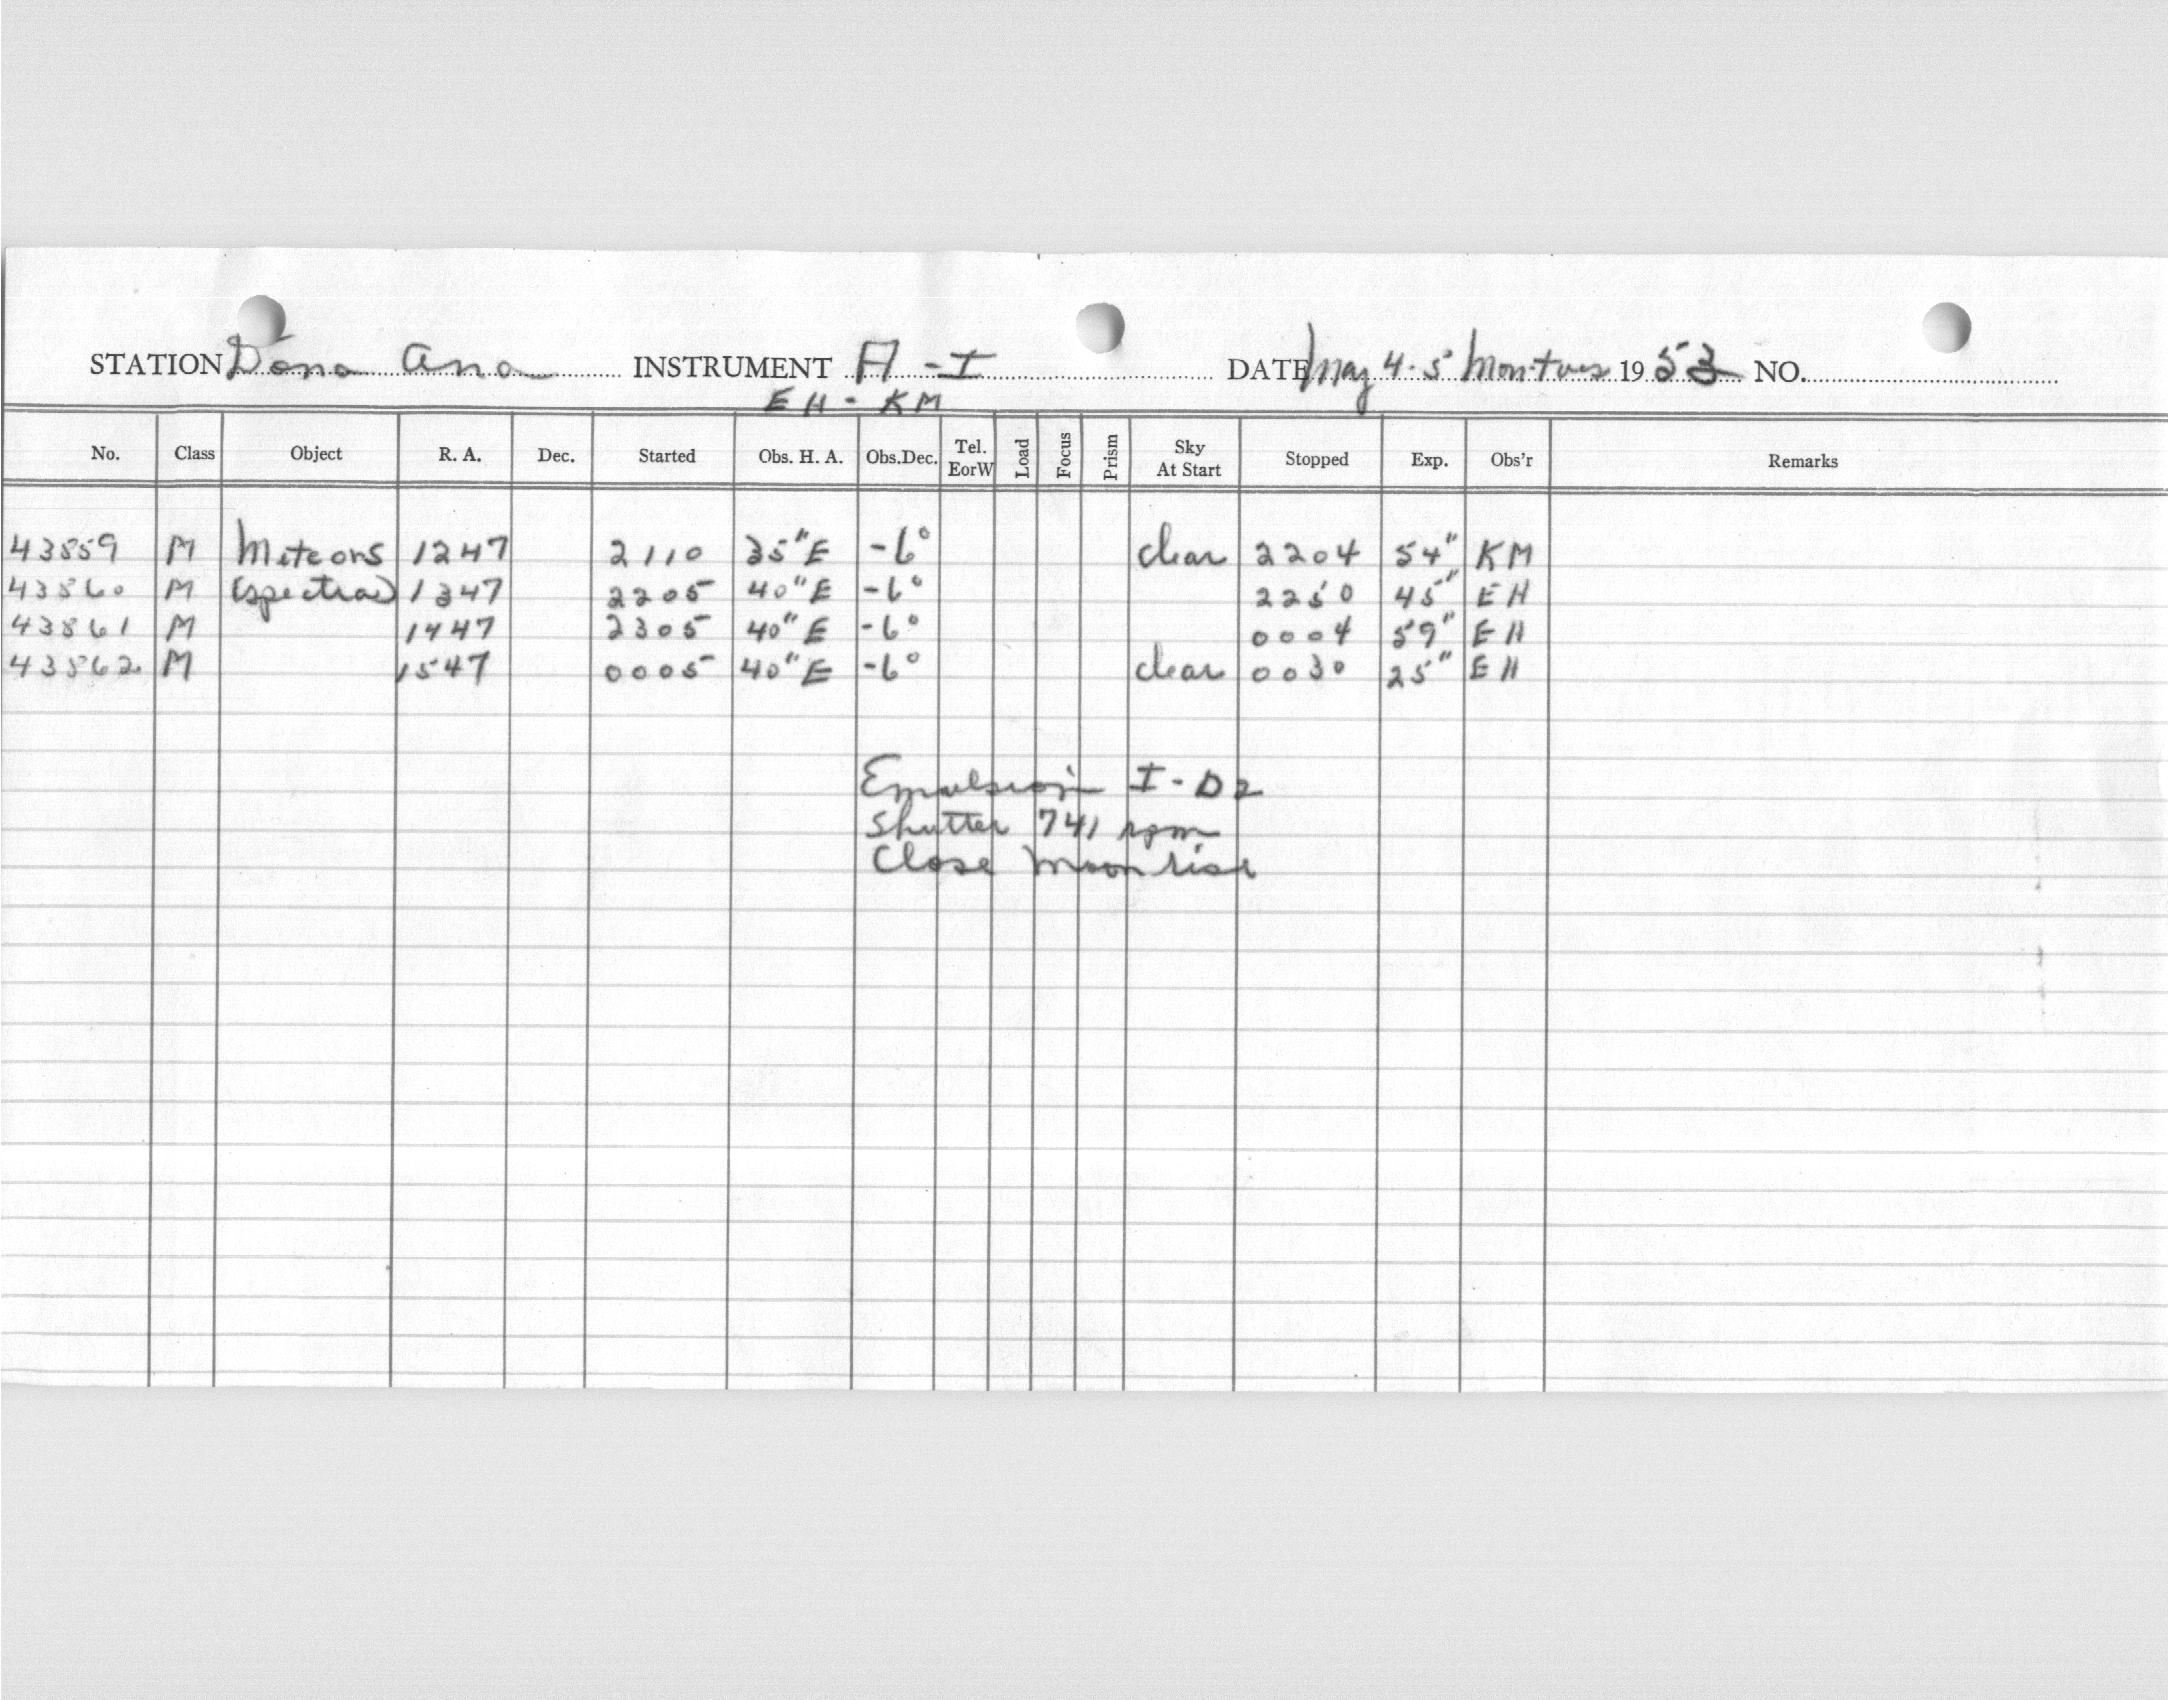 STATION Dona Ana INSTRUMENT A-I DATE May 4-5 Mon-Tues 1953 NO.
EH - KM
No. Class Object R. A. Dec. Started Obs. H. A. Obs.Dec. Tel. EorW Load Focus Prism Sky At Start Stopped Exp. Obs'r Remarks
43859 M Meteors 1247 2110 35"E -6° clear 2204 54" KM
43860 M (spectra) 1347 2205 40"E -6° 2250 45" EH
43861 M 1447 2305 40"E -6° 0004 59" EH
43862 M 1547 0005 40"E -6° clear 0030 25" EH
Emulsion I-D2
Shutter 741 rpm
Close Moon rise